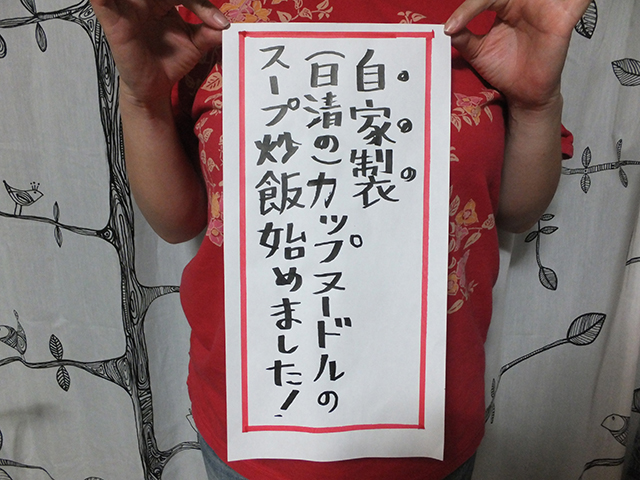 自家製
(日清の)カップヌードルの
スープ炒飯始めました!